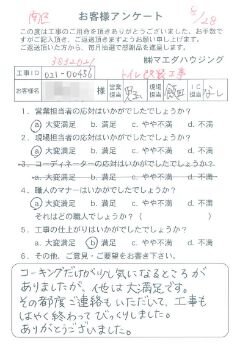 南区
4/28
お客様アンケート
この度は工事のご用命を頂きありがとうございました。お手数で
すがご記入頂き、ご返送頂きますようお願い申し上げます。
ご返送頂いた方から、毎月抽選で感謝品を進呈します。
㈱マエダハウジング
工事ID 021-00456 トイレ改装工事
お客様名 様 営業担当 現場担当 IC担当 なし
1. 営業担当者の応対はいかがでしたでしょうか?
ⓐ大変満足 b.満足 c.やや不満 d.不満
2. 現場担当者の応対はいかがでしたでしょうか?
ⓐ大変満足 b.満足 c.やや不満 d.不満
3. コーディネーターの応対はいかがでしたでしょうか?
a.大変満足 b.満足 c.やや不満 d.不満
4. 職人のマナーはいかがでしたでしょうか?
ⓐ大変満足 b.満足 c.やや不満 d.不満
それはどの職人でしょうか?( )
5. 工事の仕上がりはいかがでしたでしょうか?
a.大変満足 ⓑ満足 c.やや不満 d.不満
6. その他、ご意見・ご要望をお書き下さい。
コーキングだけが少し気になるところが
ありましたが、他は大満足です。
その都度ご連絡もいただいて、工事も
はやく終わってびっくりしました。
ありがとうございました。